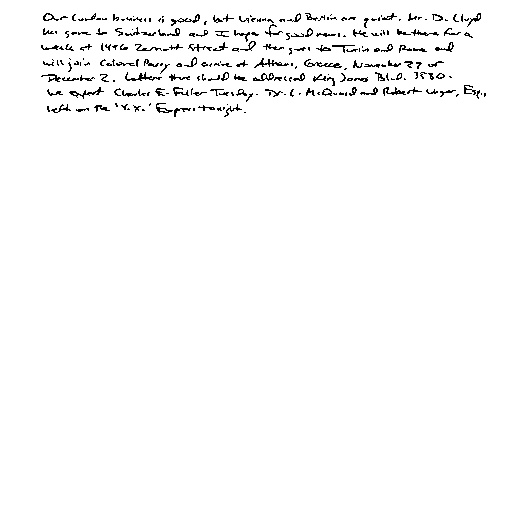 Our London business is good, but Vienna and Berlin are quiet. Mr. D. Lloyd
has gone to Switzerland and I hope for good news. He will be there for a
week at 1496 Zermott Street and then goes to Turin and Rome and
will join Colonel Parry and arrive at Athens, Greece, November 27 or
December 2. Letters there should be addressed King James Blvd. 3580.
We expect Charles E. Fuller Tuesday. Dr. L. McQuaid and Robert Unger, Esq.,
left on the 'Y.X.' Express tonight.